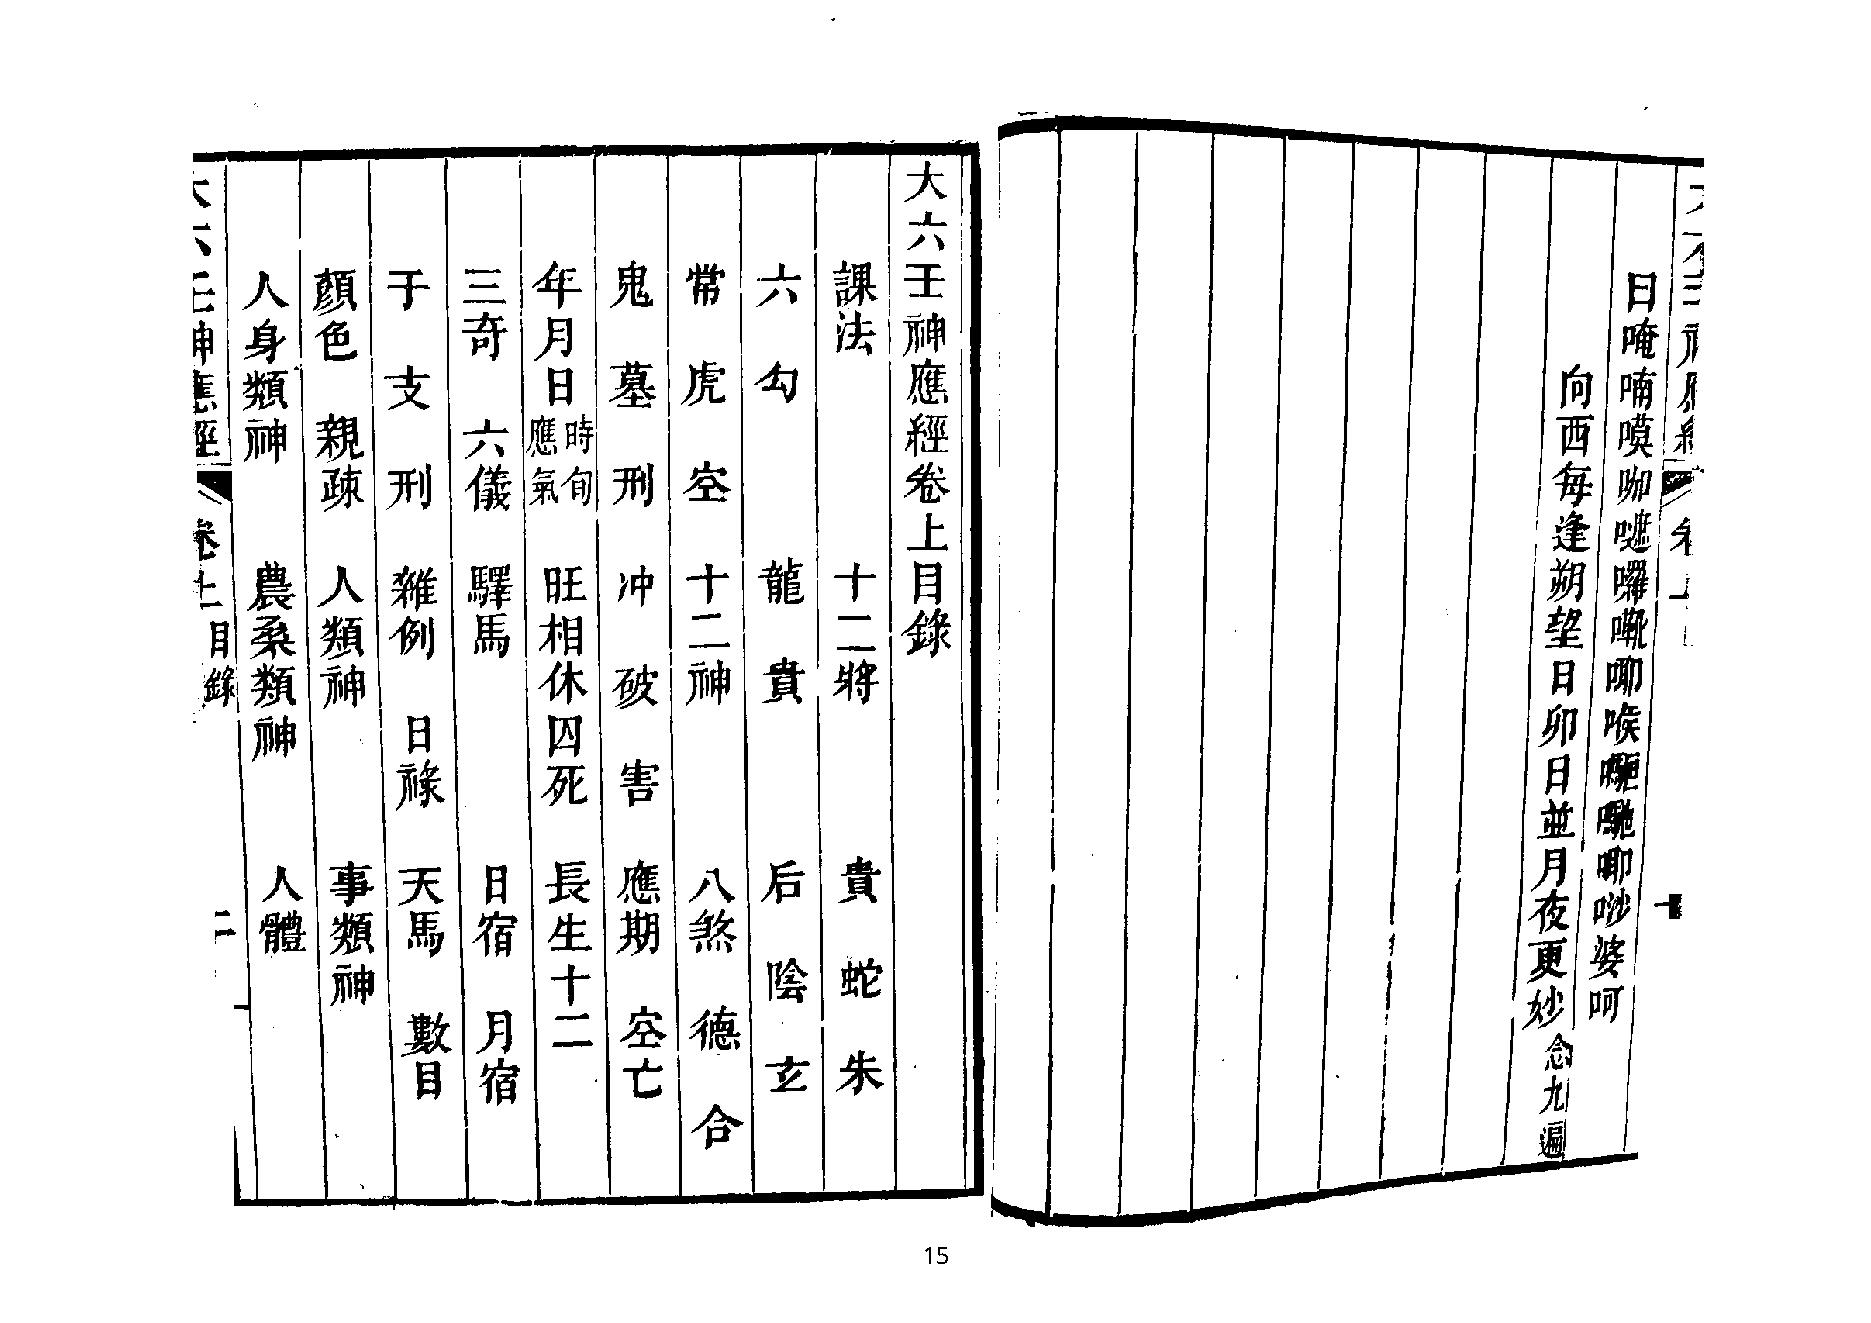 曰唵喃嘆咖嚦囉㘓唧喉
唧唦婆呵
向西每逢朔望日卯日並月夜更妙念九遍
大六壬神應經卷上目錄
課法 十二將 貴 蛇 朱
六 勾 龍 貴 后 陰 玄
常 虎 空 十二神 八煞 德 合
鬼 墓 刑 冲 破 害 應期 空亡
年月日時旬應氣 旺相休囚死 長生十二
三奇 六儀 驛馬 日宿 月宿
干 支 刑 雜例 日祿 天馬 數目
顏色 親疎 人類神 事類神
人身類神 農桑類神 人體
大六壬神應經 卷上目錄 二
15